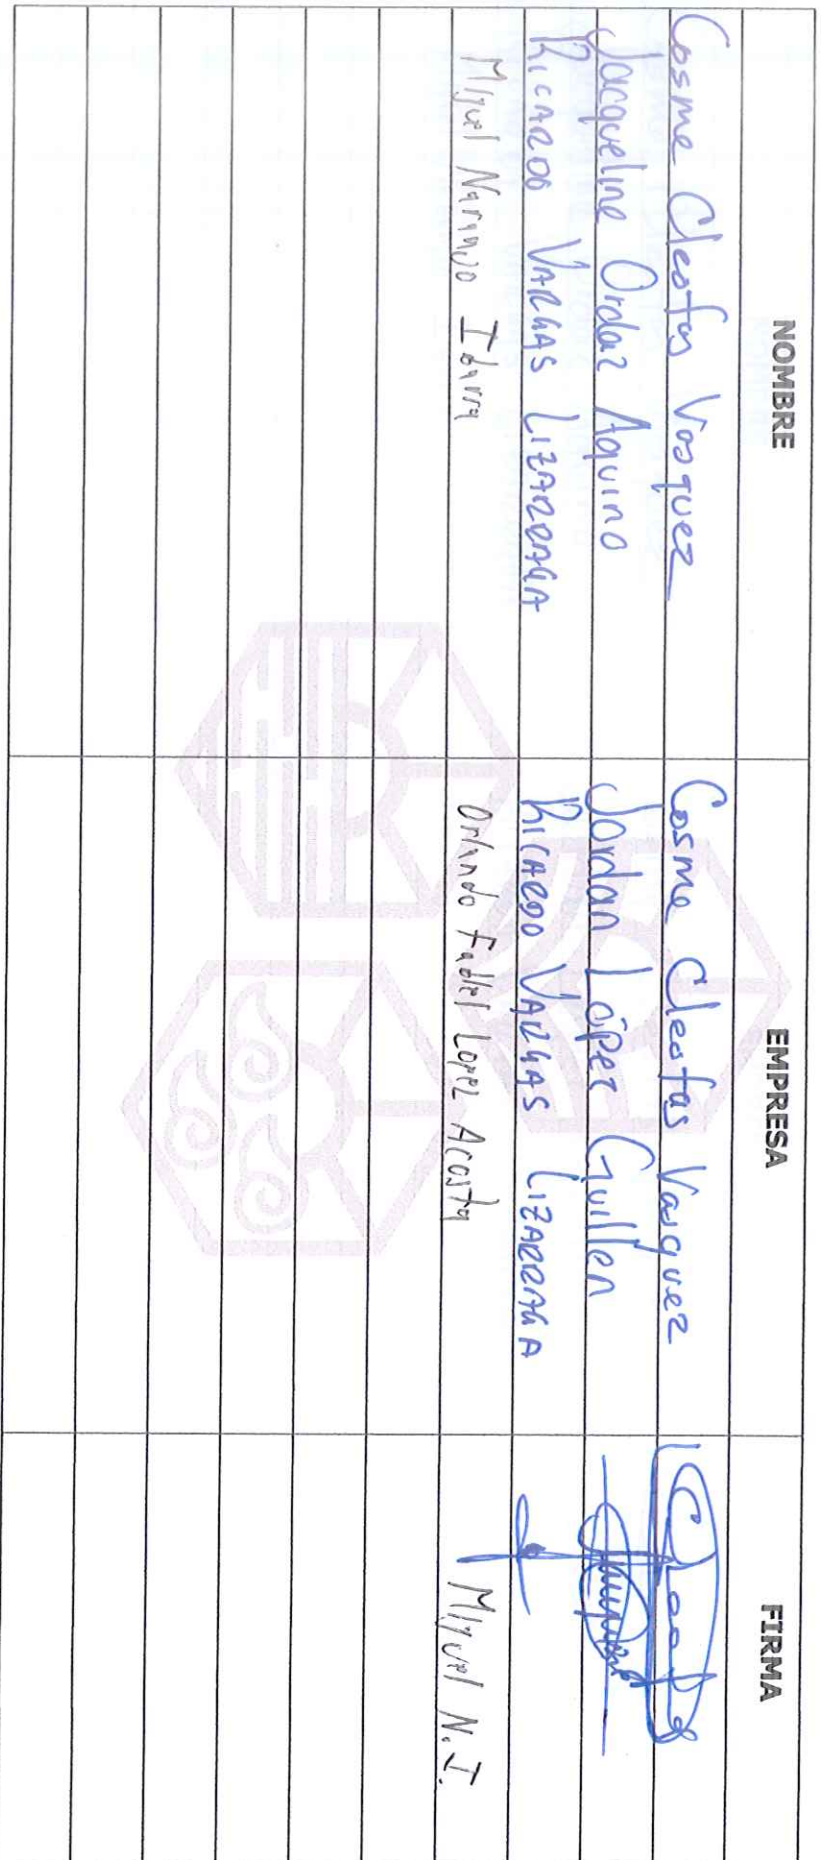 NOMBRE EMPRESA FIRMA
Cosme Cleofas Vasquez Cosme Cleofas Vasquez Cleofas
Jacqueline Ordaz Aquino Jordan López Guillen
RICARDO VARGAS LIZARRAGA RICARDO VARGAS LIZARRAGA
Miguel Naranjo Ibarra Orlando Fadiel Lopez Acosta Miguel N.I.